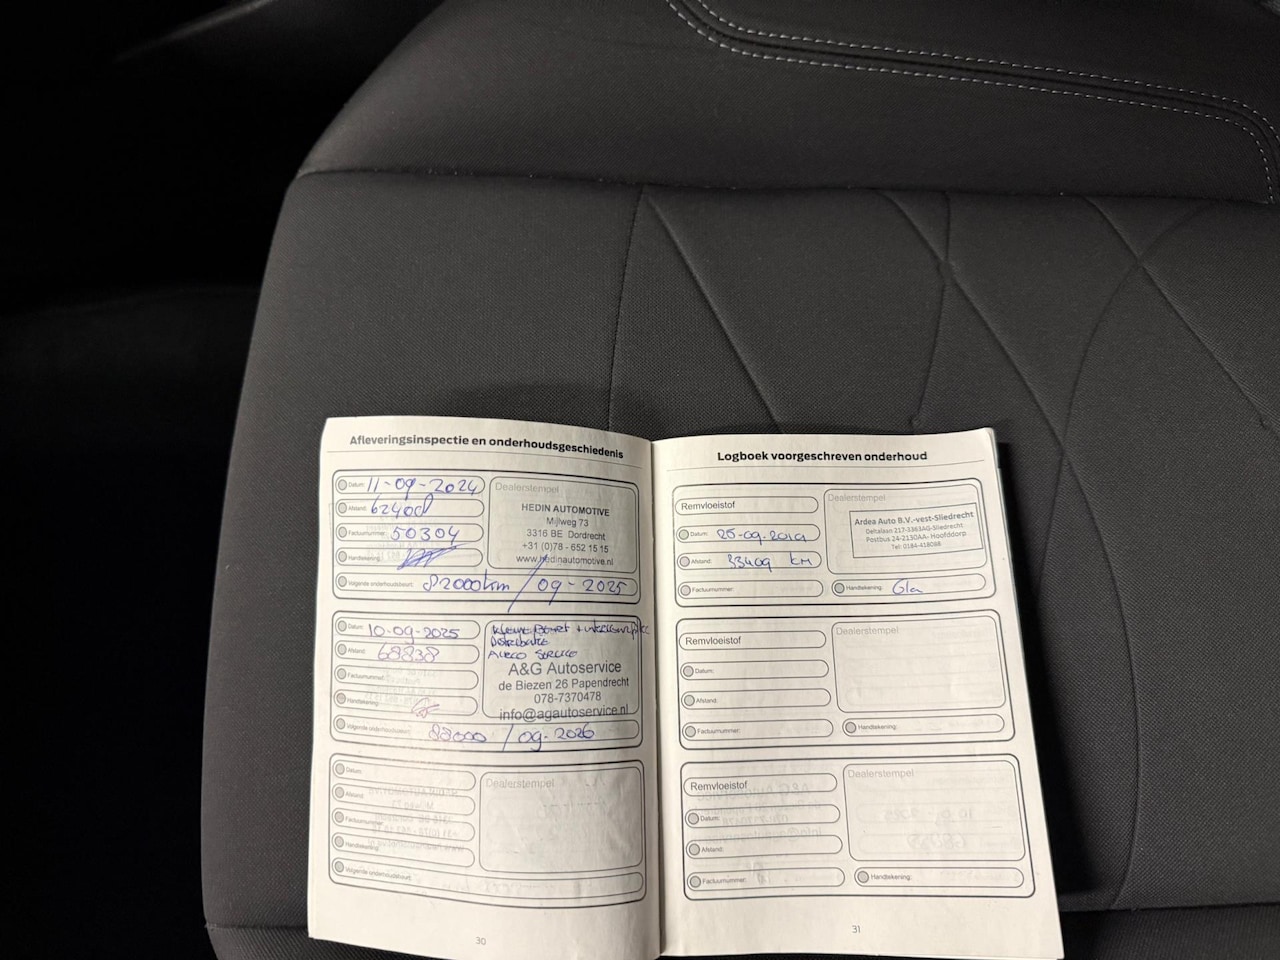 Afleveringsinspectie en onderhoudsgeschiedenis
Datum: 11-09-2024
Afstand:
Factuurnummer: 50304
Handtekening:
Volgende onderhoudsbeurt: 82000km / 09-2025
Dealerstempel
HEDIN AUTOMOTIVE
Mijlweg 73
3316 BE Dordrecht
+31 (0)78 - 652 15 15
www.hedinautomotive.nl
Datum: 10-09-2025
Afstand: 68838
Factuurnummer:
Handtekening:
Volgende onderhoudsbeurt: 83000 / 09-2026
Kleine Beurt +
Distributie
Airco Service
A&G Autoservice
de Biezen 26 Papendrecht
078-7370478
info@agautoservice.nl
Datum:
Afstand:
Factuurnummer:
Handtekening:
Volgende onderhoudsbeurt:
Dealerstempel
30
Logboek voorgeschreven onderhoud
Remvloeistof
Datum: 25-09-2019
Afstand: 33409 KM
Factuurnummer:
Dealerstempel
Ardea Auto B.V.-vest-Sliedrecht
Deltalaan 217-3363AG-Sliedrecht
Postbus 24-2130AA- Hoofddorp
Tel: 0184-418088
Handtekening:
Remvloeistof
Datum:
Afstand:
Factuurnummer:
Dealerstempel
Handtekening:
Remvloeistof
Datum:
Afstand:
Factuurnummer:
Dealerstempel
Handtekening:
31